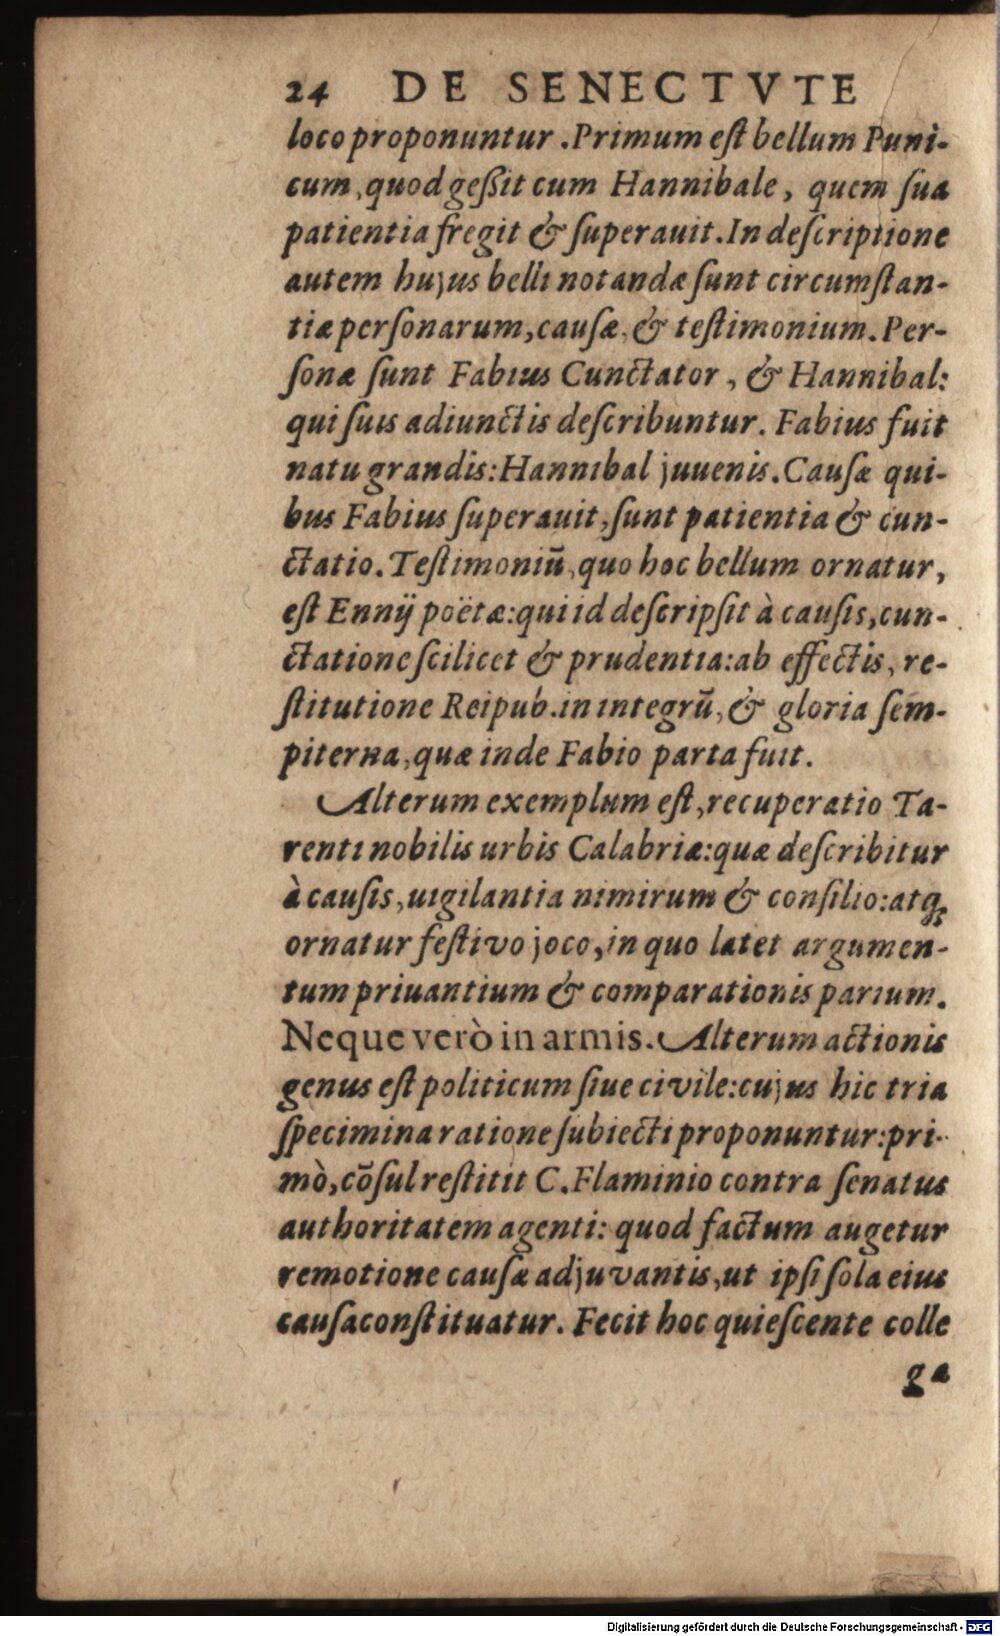 24 DE SENECTVTE
loco proponuntur. Primum eſt bellum Puni-
cum, quod geßit cum Hannibale, quem ſua
patientia fregit & ſuperauit. In deſcriptione
autem hujus belli notandæ ſunt circumſtan-
tiæ perſonarum, cauſæ, & teſtimonium. Per-
ſonæ ſunt Fabius Cunctator, & Hannibal:
qui ſuis adiunctis deſcribuntur. Fabius fuit
natu grandis: Hannibal juuenis. Cauſæ qui-
bus Fabius ſuperauit, ſunt patientia & cun-
ctatio. Teſtimoniũ, quo hoc bellum ornatur,
eſt Ennij poëtæ: qui id deſcripſit à cauſis, cun-
ctatione ſcilicet & prudentia: ab effectis, re-
ſtitutione Reipub. in integrũ, & gloria ſem-
piterna, quæ inde Fabio parta fuit.
Alterum exemplum eſt, recuperatio Ta-
renti nobilis urbis Calabriæ: quæ deſcribitur
à cauſis, uigilantia nimirum & conſilio: atq;
ornatur feſtivo joco, in quo latet argumen-
tum priuantium & comparationis parium.
Neque verò in armis. Alterum actionis
genus eſt politicum ſiue civile: cujus hic tria
ſpecimina ratione ſubiecti proponuntur: pri-
mò, cõſul reſtitit C. Flaminio contra ſenatus
authoritatem agenti: quod factum augetur
remotione cauſæ adjuvantis, ut ipſi ſola eius
cauſa conſtituatur. Fecit hoc quieſcente colle
ga
Digitalisierung gefördert durch die Deutsche Forschungsgemeinschaft - DFG